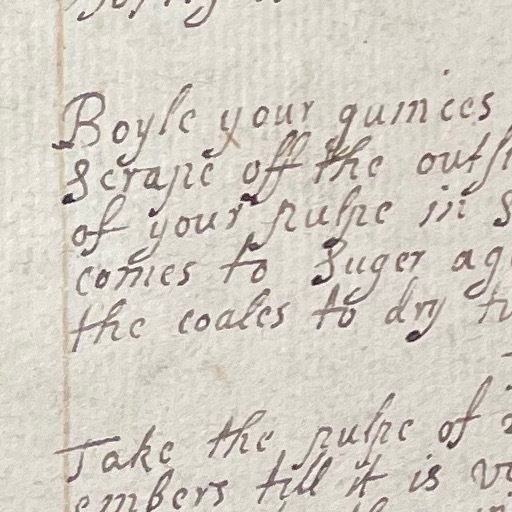 Boyle your quinces
Scrape off the
of your pulpe in
comes to Suger
the coales to dry
Take the pulpe of
embers till it is